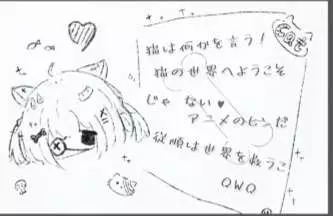 猫は何かを言う！
猫の世界へようこそ
じゃ ない♥
アニメのヒンだ
従順は世界を救うこ
QWQ